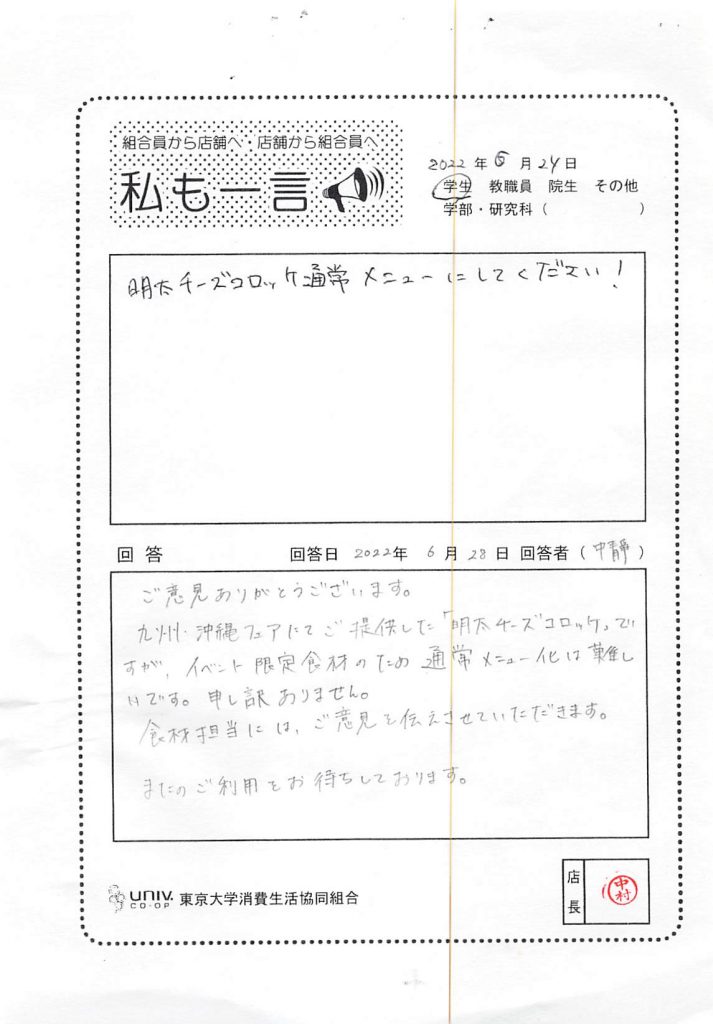 組合員から店舗へ・店舗から組合員へ
私も一言
2022年6月24日
学生 教職員 院生 その他
学部・研究科（ ）
明太チーズコロッケ通常メニューにしてください！
回答 回答日 2022年 6月 28日 回答者（中静）
ご意見ありがとうございます。
九州・沖縄フェアにてご提供した「明太チーズコロッケ」で
すが、イベント限定食材のため通常メニュー化は難し
いです。申し訳ありません。
食材担当には、ご意見を伝えさせていただきます。
またのご利用をお待ちしております。
UNIV. CO-OP 東京大学消費生活協同組合
店長 中村